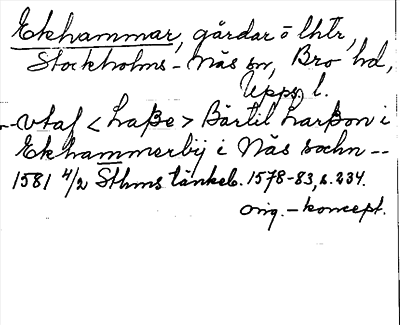 Ekhammar, gårdar o lhtr,
Stockholms-Näs sn, Bro hd,
Upps. l.
-- vtaf <Laße> Bärtil Larßon i
Ekhammerbij i Näs sochn --
1581 4/2 Sthms tänkeb. 1578-83, s. 234.
orig. - koncept.